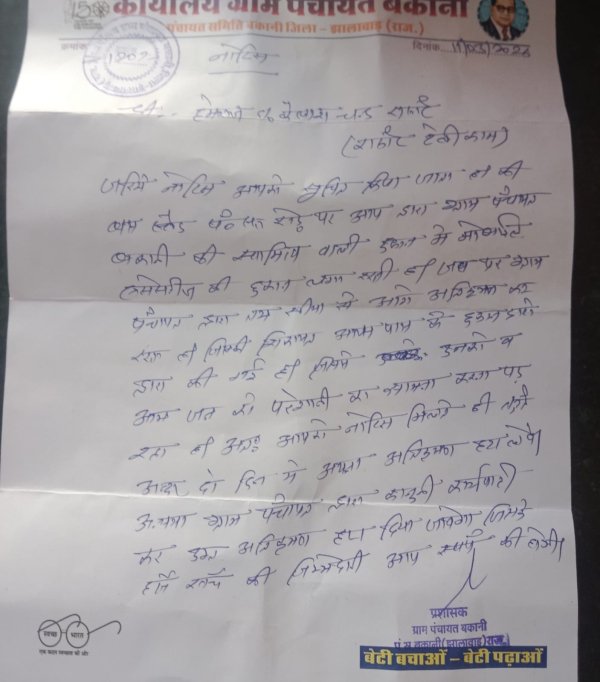 कार्यालय ग्राम पंचायत बकानी
पंचायत समिति बकानी जिला - झालावाड़ (राज.)
क्रमांक
दिनांक
नोटिस
हेमन्त
जरिये नोटिस आपको सूचित किया जाता है की
बस स्टैंड पर आप द्वारा ग्राम पंचायत
बकानी की स्वामित्व वाली दुकान में मोबाईल
एसेसेरीज की दुकान लगा रखी है जिस पर ग्राम
पंचायत द्वारा तय सीमा से आगे अतिक्रमण कर
रखा है जिसकी शिकायत आस पास के दुकानदारो
द्वारा की गई है जिससे उनको व
आम जन को परेशानी का सामना करना पड़
रहा है अतः आपको नोटिस मिलते ही
अन्दर दो दिन में अपना अतिक्रमण हटा लेवे।
अन्यथा ग्राम पंचायत द्वारा कानूनी कार्यवाही
कर उक्त अतिक्रमण हटा दिया जावेगा जिसके
हर्जे खर्चे की जिम्मेदारी आप स्वयं की होगी।
प्रशासक
ग्राम पंचायत बकानी
पं.स. बकानी (झालावाड़) राज.
स्वच्छ भारत
एक कदम स्वच्छता की ओर
बेटी बचाओं - बेटी पढ़ाओं